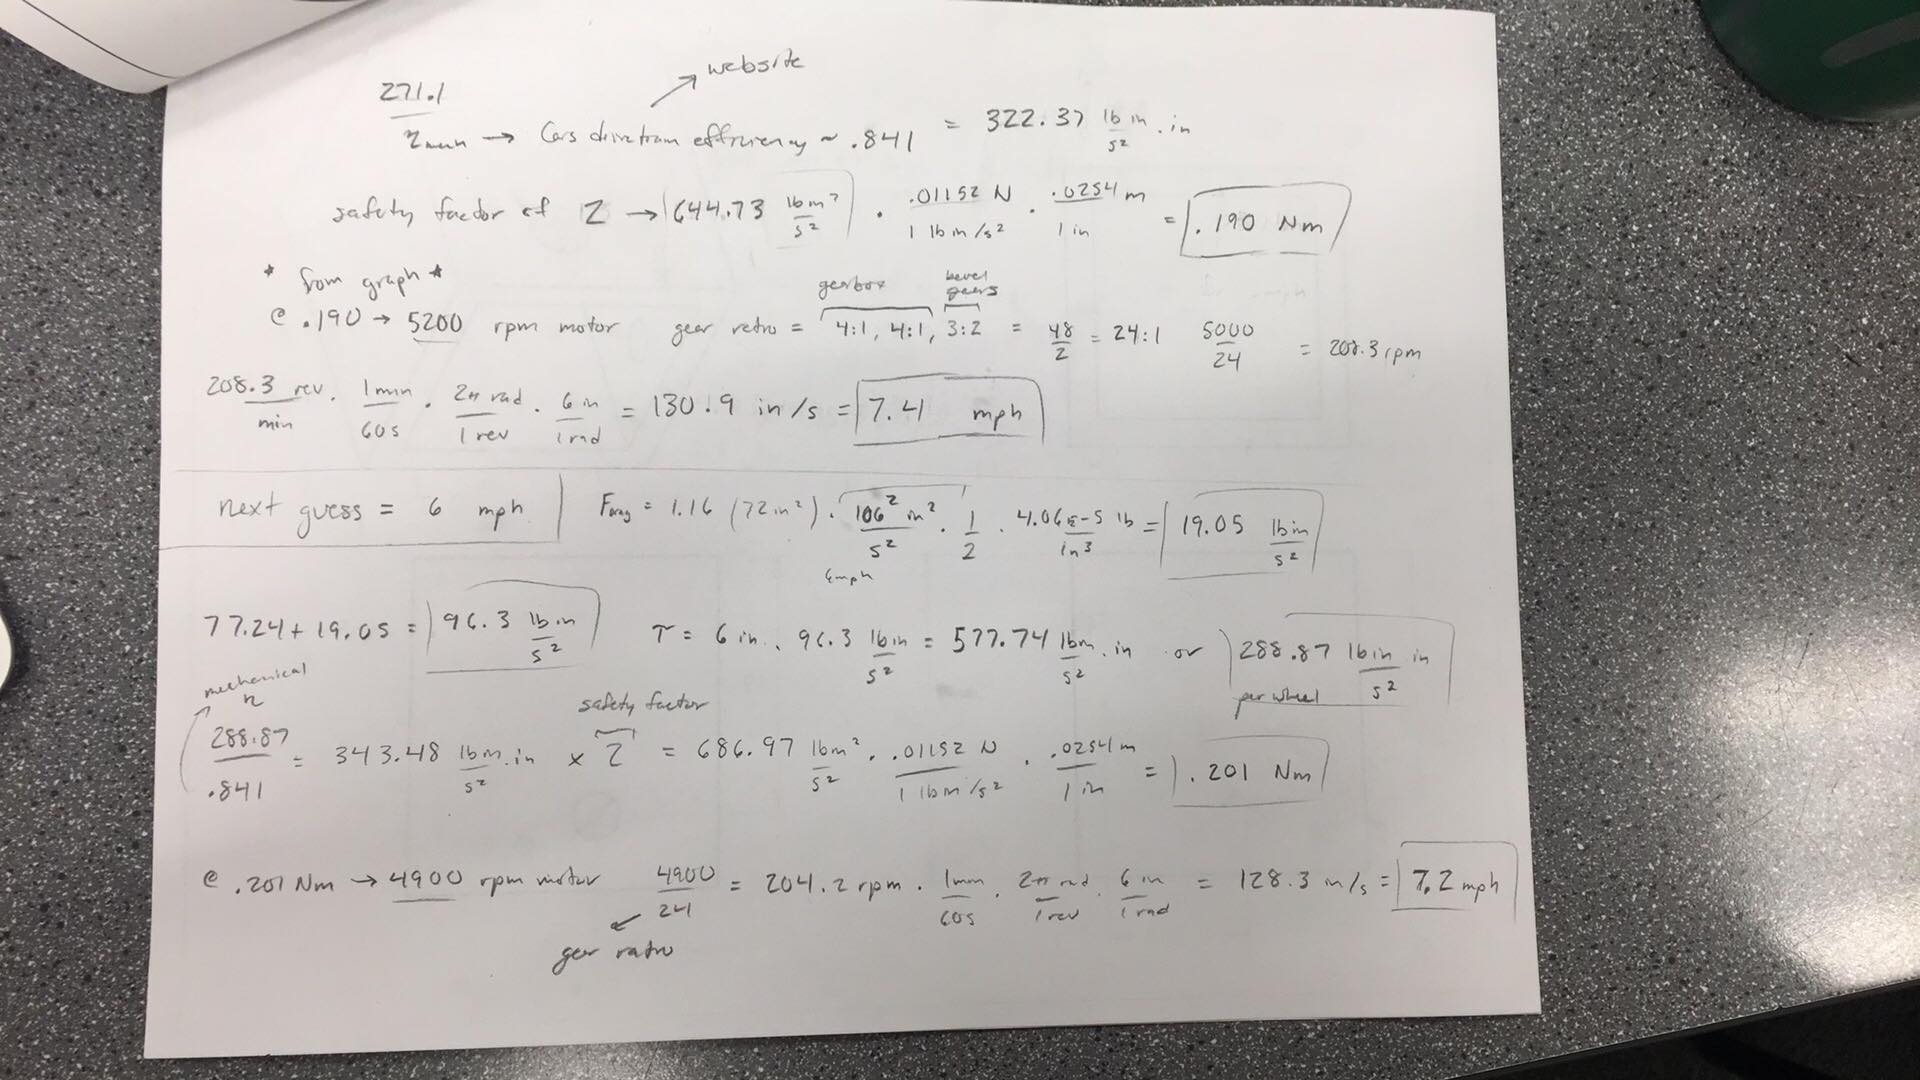 website
271.1 / ηmech → Cars drivetrain efficiency ~ .841 = 322.37 lb in / s² . in
safety factor of 2 → 644.73 lbin² / s² · .01152 N / 1 lbin/s² · .0254 m / 1 in = .190 Nm
* from graph *
gearbox bevel gears
@ .190 → 5200 rpm motor gear ratio = 4:1, 4:1, 3:2 = 48/2 = 24:1 5000/24 = 208.3 rpm
208.3 rev/min · 1min/60s · 2π rad/1 rev · 6 in/1 rad = 130.9 in/s = 7.41 mph
next guess = 6 mph Fdrag = 1.16 (72in²) · 106² in²/s² · 1/2 · 4.06E-5 lb/in³ = 19.05 lbin/s²
6mph
77.24 + 19.05 = 96.3 lbin/s² τ = 6 in · 96.3 lbin/s² = 577.74 lbin/s² . in or 288.87 lbin/s² in
mechanical η safety factor per wheel
288.87/.841 = 343.48 lbin/s² . in x 2 = 686.97 lbin²/s² · .01152 N / 1 lbin/s² · .0254 m / 1 in = .201 Nm
@ .201 Nm → 4900 rpm motor 4900/24 = 204.2 rpm · 1min/60s · 2π rad/1 rev · 6 in/1 rad = 128.3 in/s = 7.2 mph
gear ratio